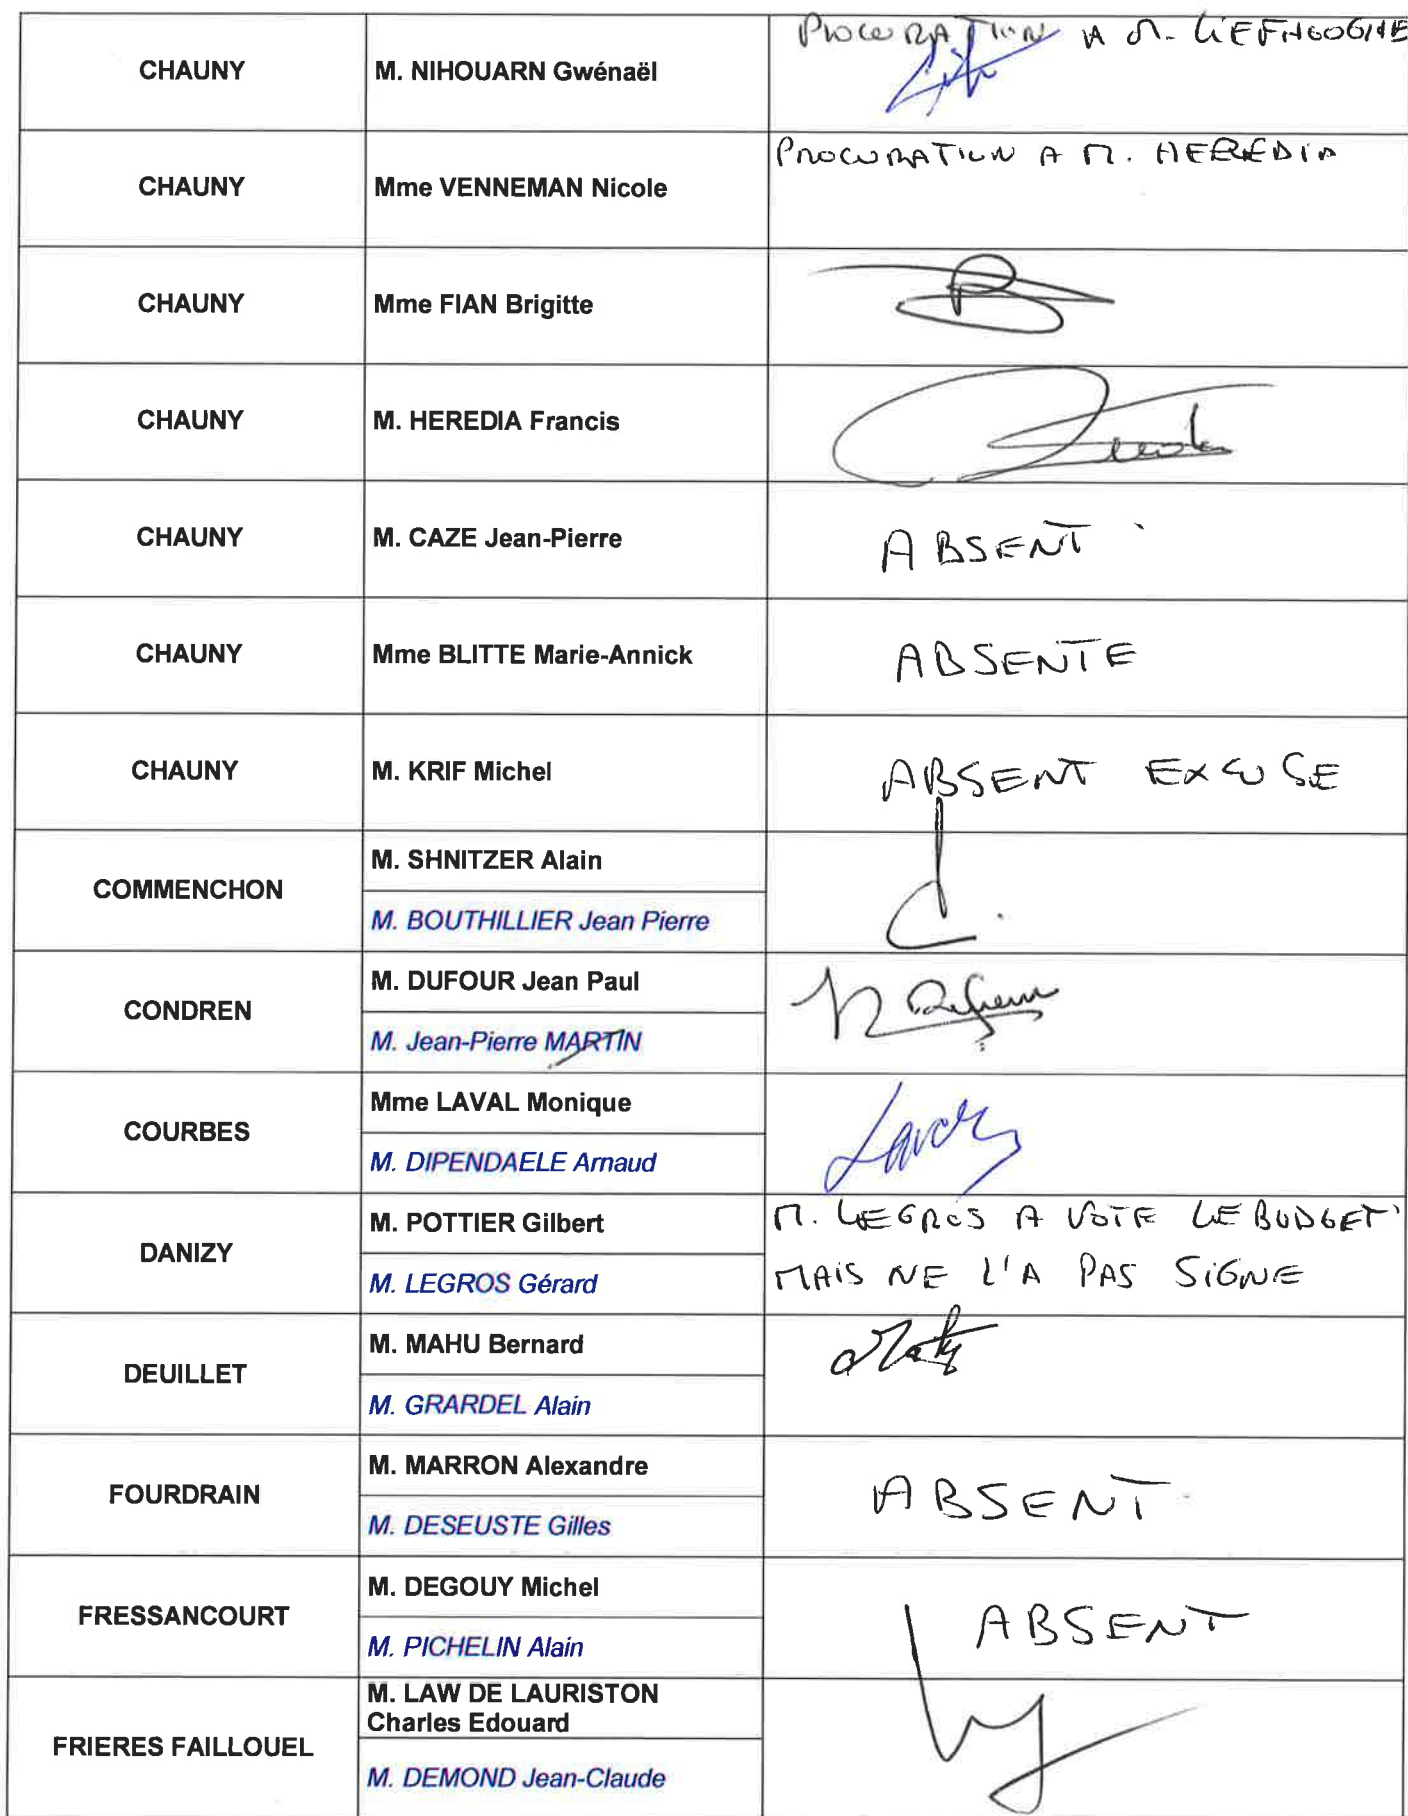 CHAUNY
M. NIHOUARN Gwénaël
PROCURATION A M. LIEFHOOGHE
CHAUNY
Mme VENNEMAN Nicole
PROCURATION A M. HEREDIA
CHAUNY
Mme FIAN Brigitte
CHAUNY
M. HEREDIA Francis
CHAUNY
M. CAZE Jean-Pierre
ABSENT
CHAUNY
Mme BLITTE Marie-Annick
ABSENTE
CHAUNY
M. KRIF Michel
ABSENT EXCUSE
COMMENCHON
M. SHNITZER Alain
M. BOUTHILLIER Jean Pierre
CONDREN
M. DUFOUR Jean Paul
M. Jean-Pierre MARTIN
COURBES
Mme LAVAL Monique
M. DIPENDAELE Arnaud
DANIZY
M. POTTIER Gilbert
M. LEGROS Gérard
M. LEGROS A VOTE LE BUDGET
MAIS NE L'A PAS SIGNE
DEUILLET
M. MAHU Bernard
M. GRARDEL Alain
FOURDRAIN
M. MARRON Alexandre
M. DESEUSTE Gilles
ABSENT
FRESSANCOURT
M. DEGOUY Michel
M. PICHELIN Alain
ABSENT
FRIERES FAILLOUEL
M. LAW DE LAURISTON
Charles Edouard
M. DEMOND Jean-Claude